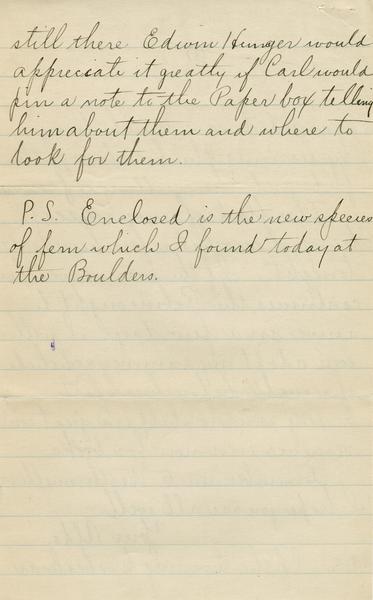 still there Edwin Hunger would
appreciate it greatly if Carl would
pin a note to the Paper box telling
him about them and where to
look for them.
P.S. Enclosed is the new species
of fern which I found today at
the Boulders.